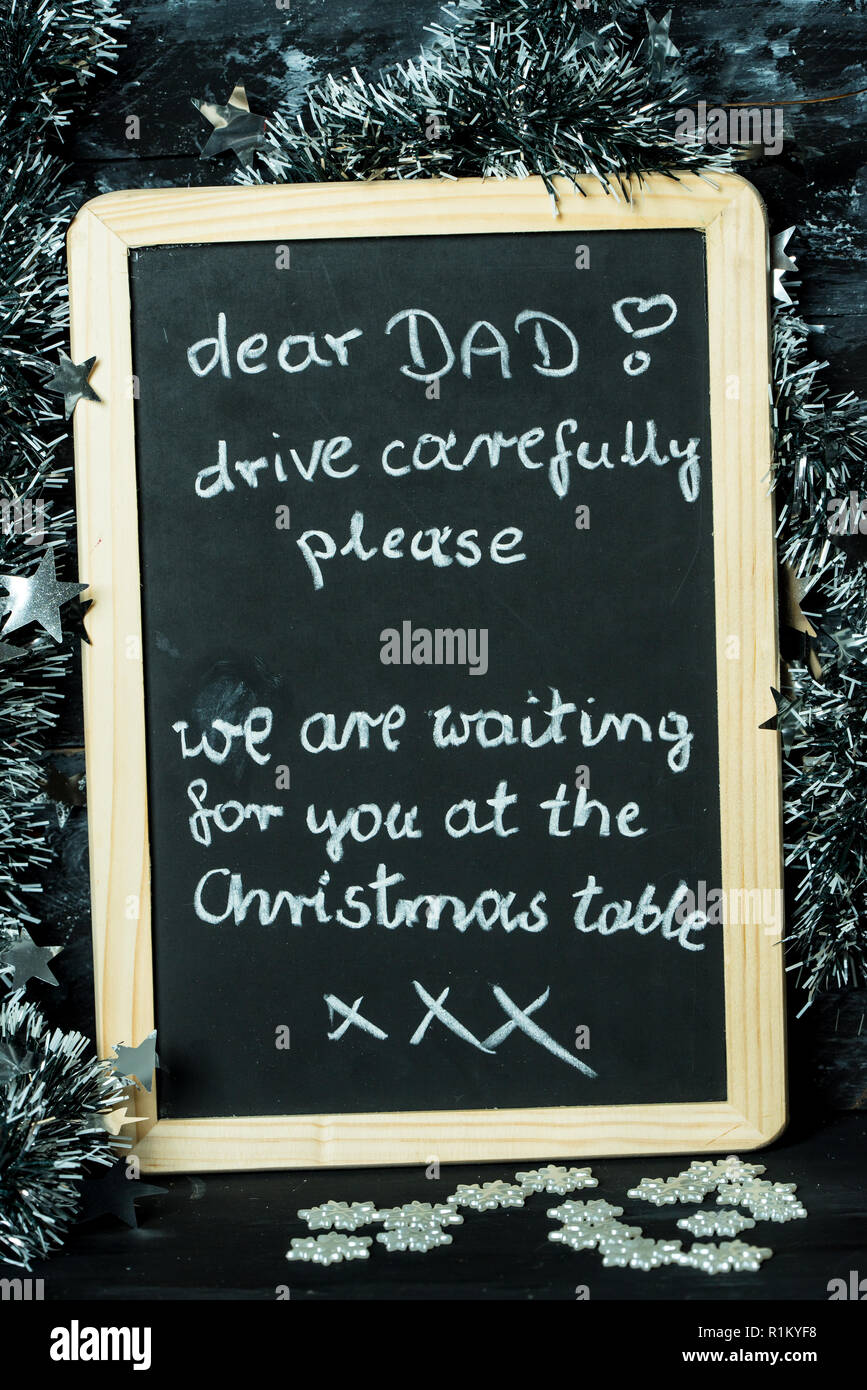 dear DAD
drive carefully
please
we are waiting
for you at the
Christmas table
x X X
alamy
Image ID: R1KYF8
www.alamy.com